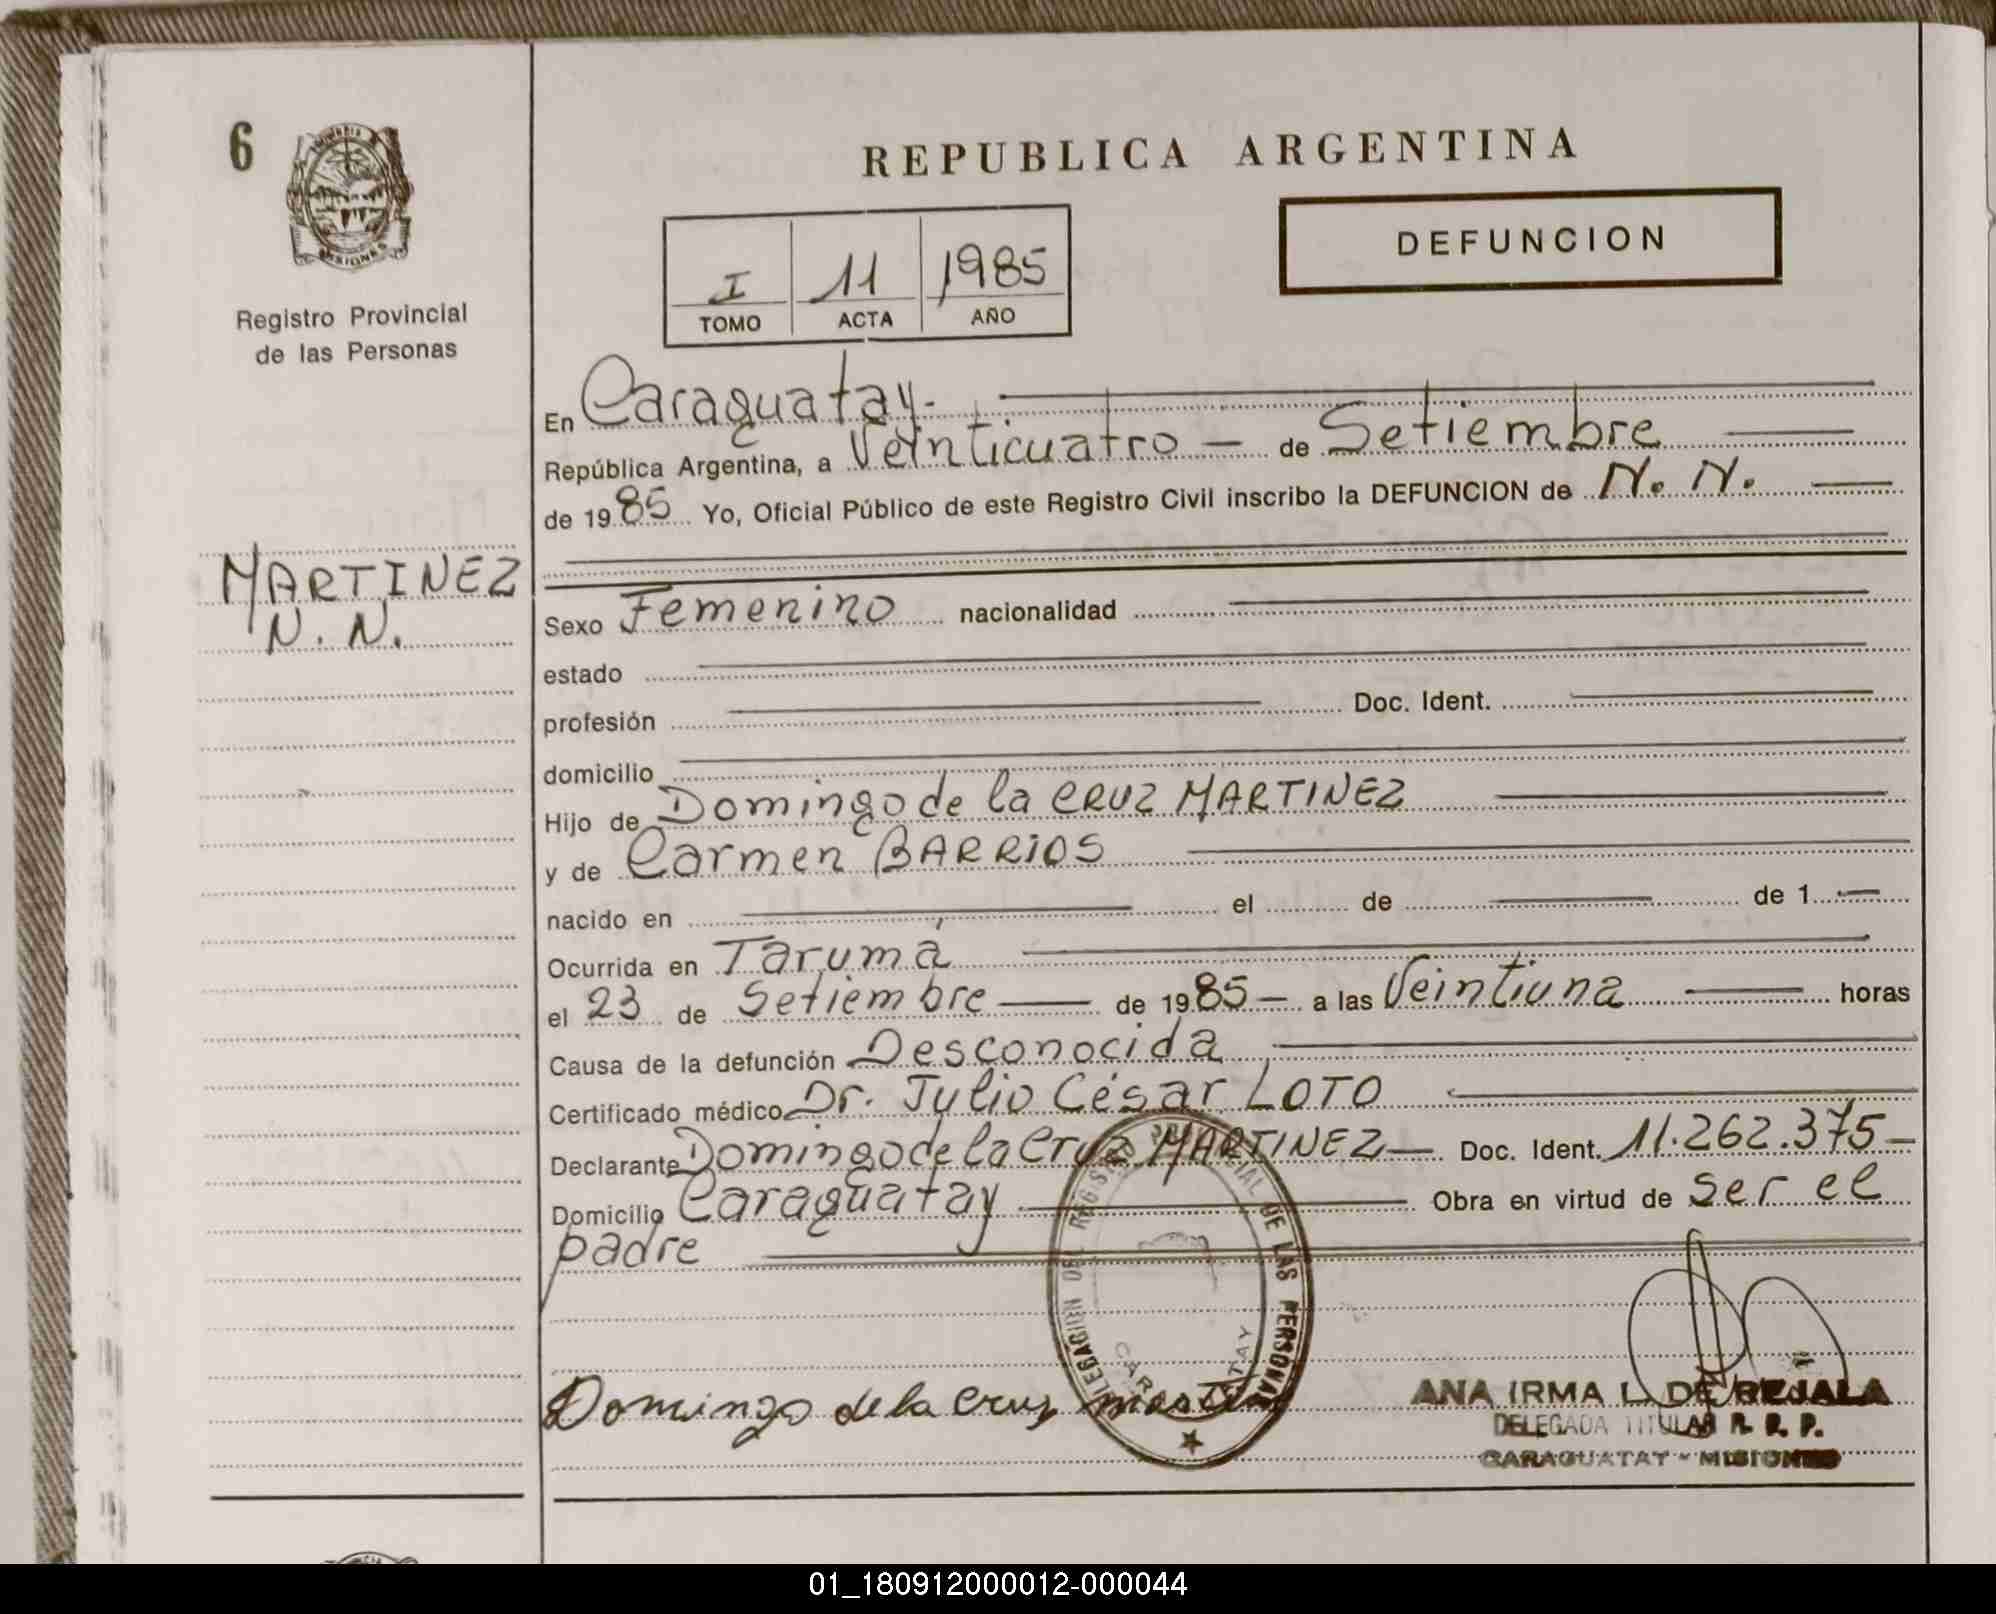 6
PROVINCIA DE
MISIONES
Registro Provincial
de las Personas
MARTINEZ
N. N.
REPUBLICA ARGENTINA
DEFUNCION
I 11 1985
TOMO ACTA AÑO
En Caraguatay.-
República Argentina, a Veinticuatro — de Setiembre
de 1985 Yo, Oficial Público de este Registro Civil inscribo la DEFUNCION de N. N.
Sexo Femenino nacionalidad
estado
profesión Doc. Ident.
domicilio
Hijo de Domingo de la CRUZ MARTINEZ
y de Carmen BARRIOS
nacido en el de de 1
Ocurrida en Tarumá
el 23 de Setiembre — de 1985 — a las Veintiuna horas
Causa de la defunción Desconocida
Certificado médico Dr. Julio César LOTO
Declarante Domingo de la Cruz MARTINEZ — Doc. Ident. 11.262.375 —
Domicilio Caraguatay Obra en virtud de ser el
padre
DELEGACION DEL REGISTRO PROVINCIAL DE LAS PERSONAS
CARAGUATAY
Domingo de la Cruz
ANA IRMA L. DE REJALA
DELEGADA TITULAR R. P. P.
CARAGUATAY - MISIONES
01_180912000012-000044